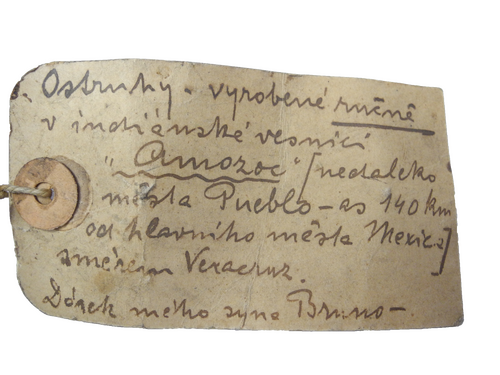 Ostruhy - vyrobené ručně
v indiánské vesnici
"Amozoc" [nedaleko
města Pueblo - as 140 km
od hlavního města Mexica]
směrem Veracruz.
Dárek mého syna Bruno -